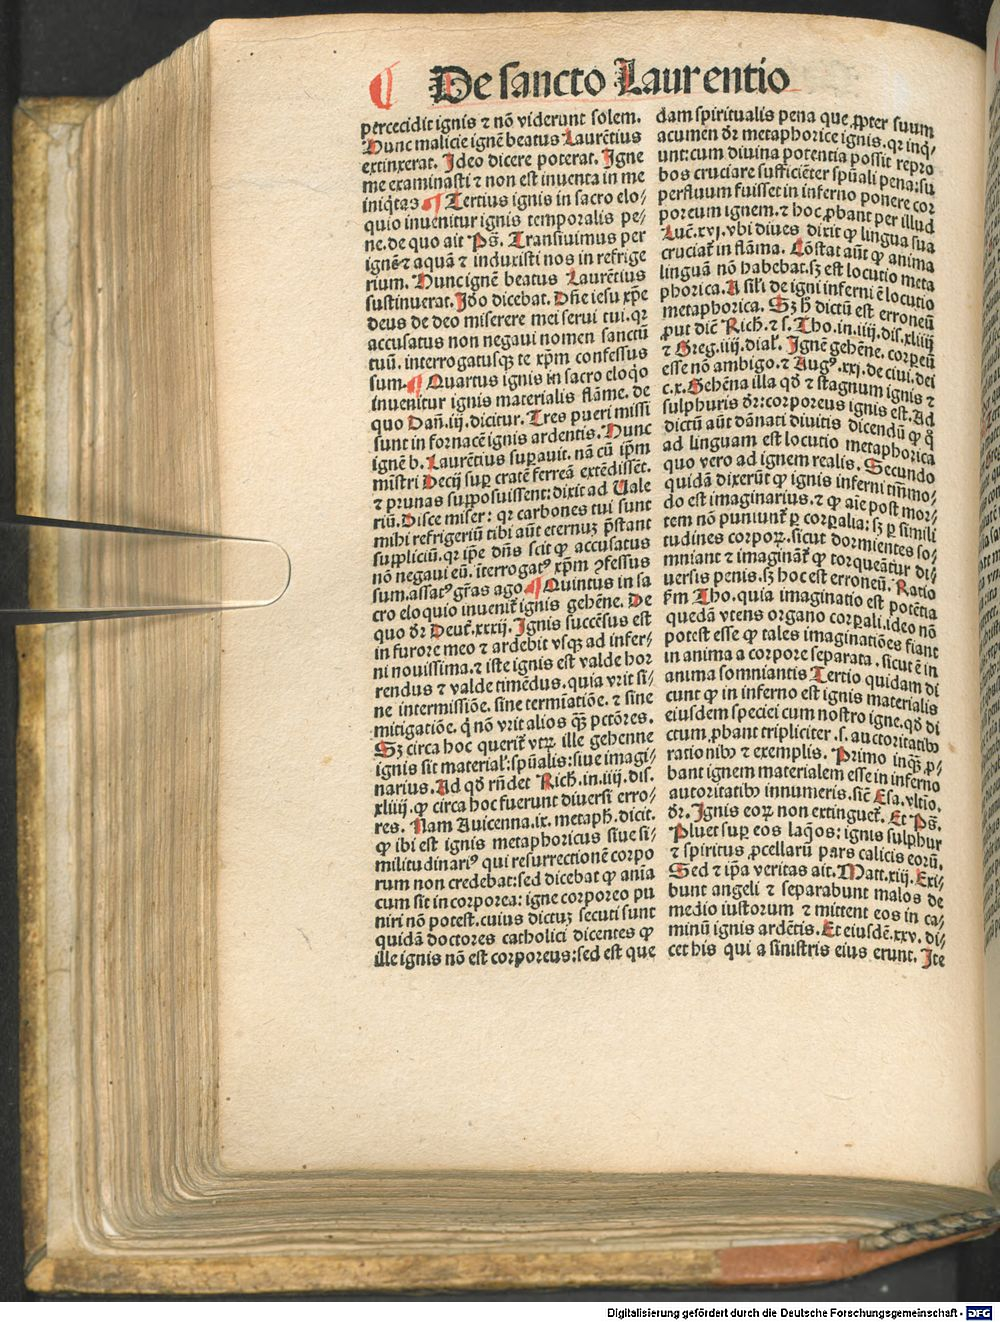 De sancto Laurentio
percecidit ignis ⁊ nõ viderunt solem.
Hunc malicie ignẽ beatus Laurẽtius
extinxerat. Ideo dicere poterat. Igne
me examinasti ⁊ non est inuenta in me
iniq̃tas ¶ Tertius ignis in sacro elo⸗
quio inuenitur ignis temporalis pe⸗
ne. de quo ait Ps̃. Transiuimus per
ignẽ ⁊ aquã ⁊ induxisti nos in refrige
rium. Hunc ignẽ beatus Laurẽtius
sustinuerat. Idõ dicebat. Dñe iesu xp̃e
deus de deo miserere mei serui tui. qꝛ
accusatus non negaui nomen sanctũ
tuũ. interrogatusqꝫ te xp̃m confessus
sum. ¶ Quartus ignis in sacro eloq̃o
inuenitur ignis materialis flãme. de
quo Dañ. iij. dicitur. Tres pueri missi
sunt in fornacẽ ignis ardentis. Hunc
ignẽ b. Laurẽtius suꝑauit. nã cũ ip̃m
mĩstri Decij suꝑ cratẽ ferreã extẽdissẽt.
⁊ prunas supposuissent: dixit ad Vale
riũ. Disce miser: qꝛ carbones tui sunt
mihi refrigeriũ tibi aũt eternuꝫ p̃stant
suppliciũ. qꝛ ip̃e dñs scit ꝙ accusatus
nõ negaui eũ. ĩterrogatꝰ xp̃m ꝯfessus
sum. assatꝰ gr̃as ago. ¶ Quintus in sa
cro eloquio inuenit᷑ ignis gehẽne. De
quo dr̃ Deut᷑. xxxij. Ignis succẽsus est
in furore meo ⁊ ardebit vsqꝫ ad infer⸗
ni nouissima. ⁊ iste ignis est valde hor
rendus ⁊ valde timẽdus. quia vrit si⸗
ne intermissiõe. sine termĩatiõe. ⁊ sine
mitigatiõe. q̃ nõ vrit alios qꝫ̃ pctõres.
Sꝫ circa hoc querit᷑ vtꝝ ille gehenne
ignis sit material᷑: sp̃ualis: siue imagi⸗
narius. Ad qð rñdet Rich̃. in. iiij. dis.
xliiij. ꝙ circa hoc fuerunt diuersi erro⸗
res. Nam Auicenna. ix. metaph̃. dicit.
ꝙ ibi est ignis metaphoricus siue si⸗
militudinariꝰ qui resurrectionẽ corpo
rum non credebat: sed dicebat ꝙ aĩa
cum sit incorporea: igne corporeo pu
niri nõ potest. cuius dictuꝫ secuti sunt
quidã doctores catholici dicentes ꝙ
ille ignis nõ est corporeus: sed est que
dam spiritualis pena que ꝓpter suum
acumen dr̃ metaphorice ignis. qꝛ inq̃⸗
unt: cum diuina potentia possit repro
bos cruciare sufficiẽter sp̃uali pena: su
perfluum fuisset in inferno ponere cor
poreum ignem. ⁊ hoc ꝓbant per illud
Luc̃. xvj. vbi diues dixit ꝙ lingua sua
cruciat᷑ in flãma. Cõstat aũt ꝙ anima
linguã nõ habebat. sꝫ est locutio meta
phorica. A sil᷑i de igni inferni ẽ locutio
metaphorica. Sꝫ h̃ dictũ est erroneũ
ꝓut dic̃ Rich̃. ⁊ s. Tho. in. iiij. dis. xliiij
⁊ Greg. iiij. dial᷑. Ignẽ gehẽne. corꝑeũ
esse nõ ambigo. ⁊ Augꝰ. xxj. de ciui. dei
c. x. Gehẽna illa qð ⁊ stagnum ignis ⁊
sulphuris dr̃: corporeus ignis est. Ad
dictũ aũt dãnati diuitis dicendũ ꝙ q̃
ad linguam est locutio metaphorica
quo vero ad ignem realis. Secundo
quidã dixerũt ꝙ ignis inferni tm̃mo⸗
do est imaginarius. ⁊ ꝙ aĩe post mor⸗
tem nõ puniunt᷑ ꝑ corꝑalia: sꝫ ꝑ simili
tudines corpoꝝ. sicut dormientes so⸗
mniant ⁊ imaginãt᷑ ꝙ torqueãtur di⸗
uersis penis. sꝫ hoc est erroneũ. Ratio
fm̃ Tho. quia imaginatio est potẽtia
quedã vtens organo corꝑali. ideo nõ
potest esse ꝙ tales imaginatiões fiant
in anima a corpore separata. sicut ẽ in
anima somniantis Tertio quidam di
cunt ꝙ in inferno est ignis materialis
eiusdem speciei cum nostro igne. qð di
ctum ꝓbant tripliciter. s. auctoritatibꝰ
rationibꝰ ⁊ exemplis. Primo inqꝫ̃ ꝓ⸗
bant ignem materialem esse in inferno
autoritatibꝰ innumeris. sic̃ Esa. vltĩo.
dr̃. Ignis eoꝝ non extinguet᷑. Et Ps̃.
Pluet suꝑ eos laq̃os: ignis sulphur
⁊ spiritus ꝓcellarũ pars calicis eorũ.
Sed ⁊ ip̃a veritas ait. Matt. xiij. Exi⸗
bunt angeli ⁊ separabunt malos de
medio iustorum ⁊ mittent eos in ca⸗
minũ ignis ardẽtis. Et eiusdẽ. xxv. di⸗
cet his qui a sinistris eius erunt. Ite
Digitalisierung gefördert durch die Deutsche Forschungsgemeinschaft - DFG